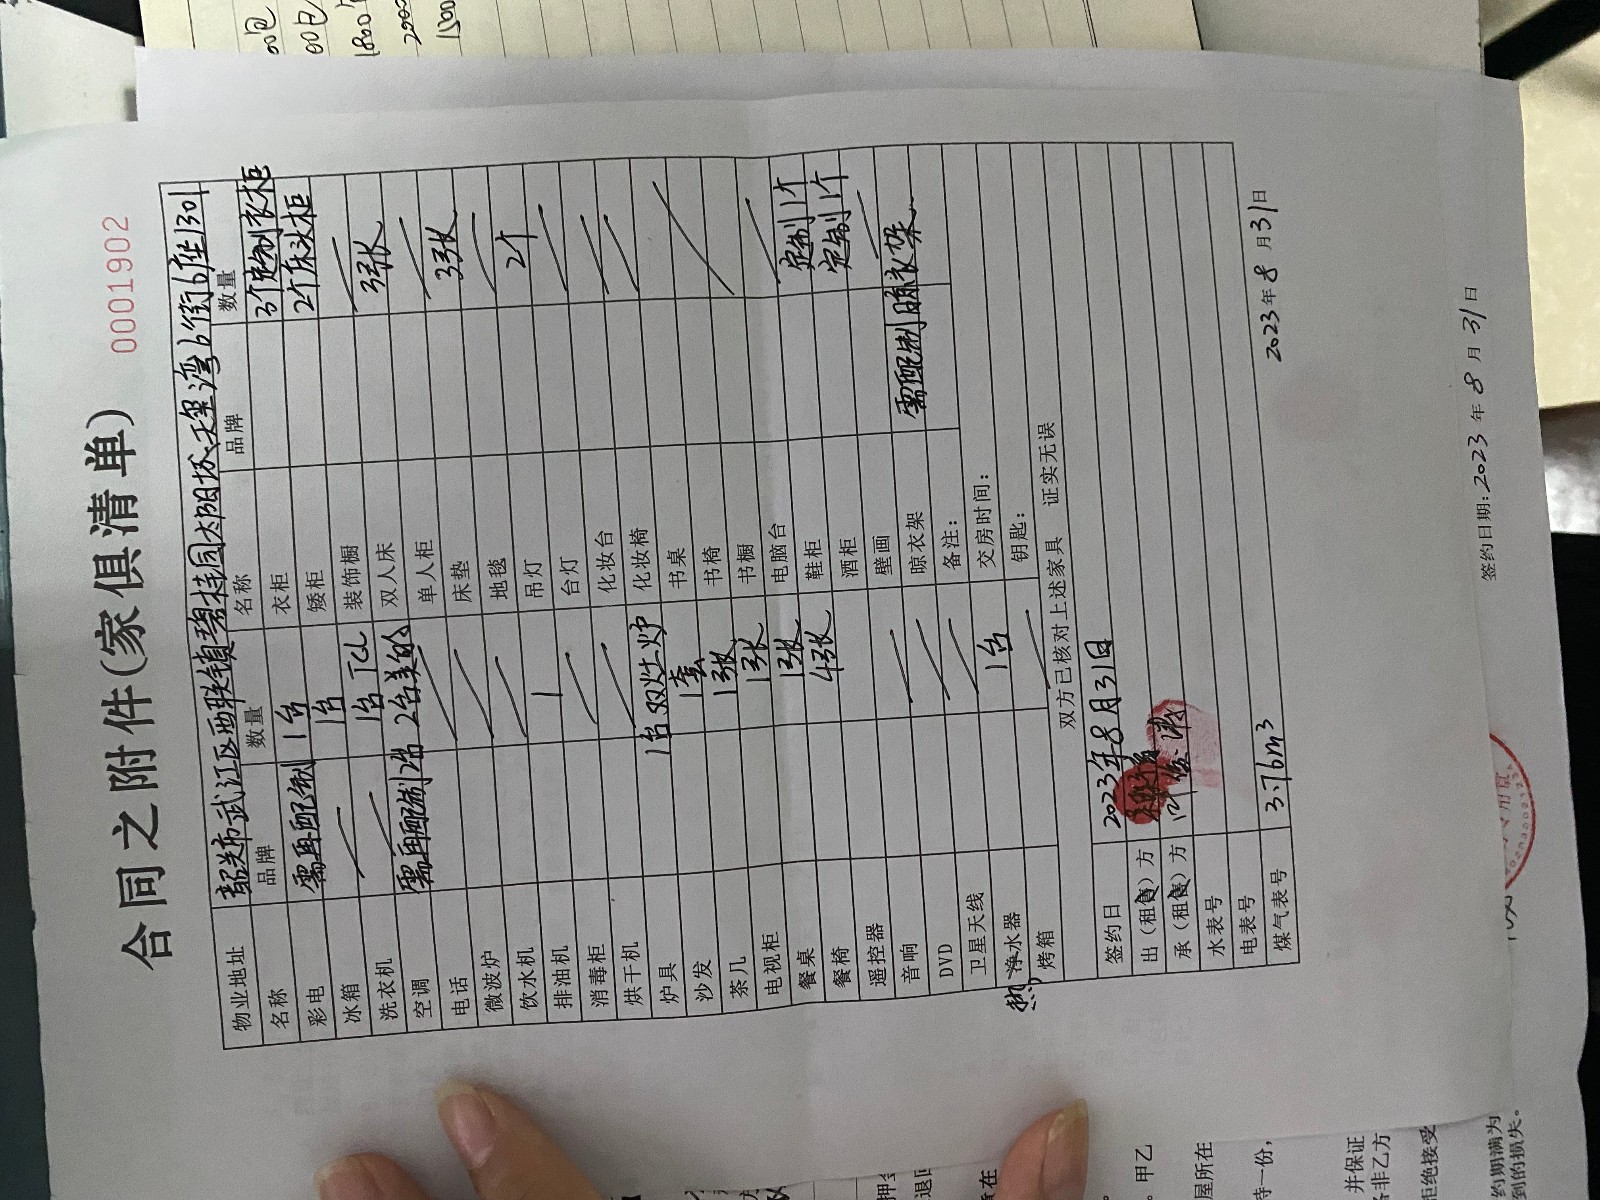 合同之附件(家俱清单)
0001902
物业地址 韶关市武江区西联镇碧桂园太阳城天玺湾6街6座1301
名称 品牌 数量 名称 品牌 数量
彩电 需再配制 1台 衣柜 3个定制衣柜
冰箱 1台 矮柜 2个床头柜
洗衣机 1台 TCL 装饰橱
空调 需再配制2台 2台美的 双人床 3张
电话 单人柜
微波炉 床垫 3张
饮水机 地毯
排油机 1 吊灯 2个
消毒柜 台灯
烘干机 化妆台
炉具 1台双灶炉 化妆椅
沙发 1套 书桌
茶几 1张 书椅
电视柜 1张 书橱
餐桌 1张 电脑台
餐椅 4张 鞋柜 定制1个
遥控器 酒柜 定制1个
音响 壁画
DVD 晾衣架 需配制晾衣架
卫星天线 备注:
热净水器 1台 交房时间:
烤箱 钥匙:
双方已核对上述家具 证实无误
签约日 2023年8月31日
出（租售）方
承（租售）方
水表号
电表号
煤气表号 3.76m3
2023年8月31日
签约日期:2023年8月31日